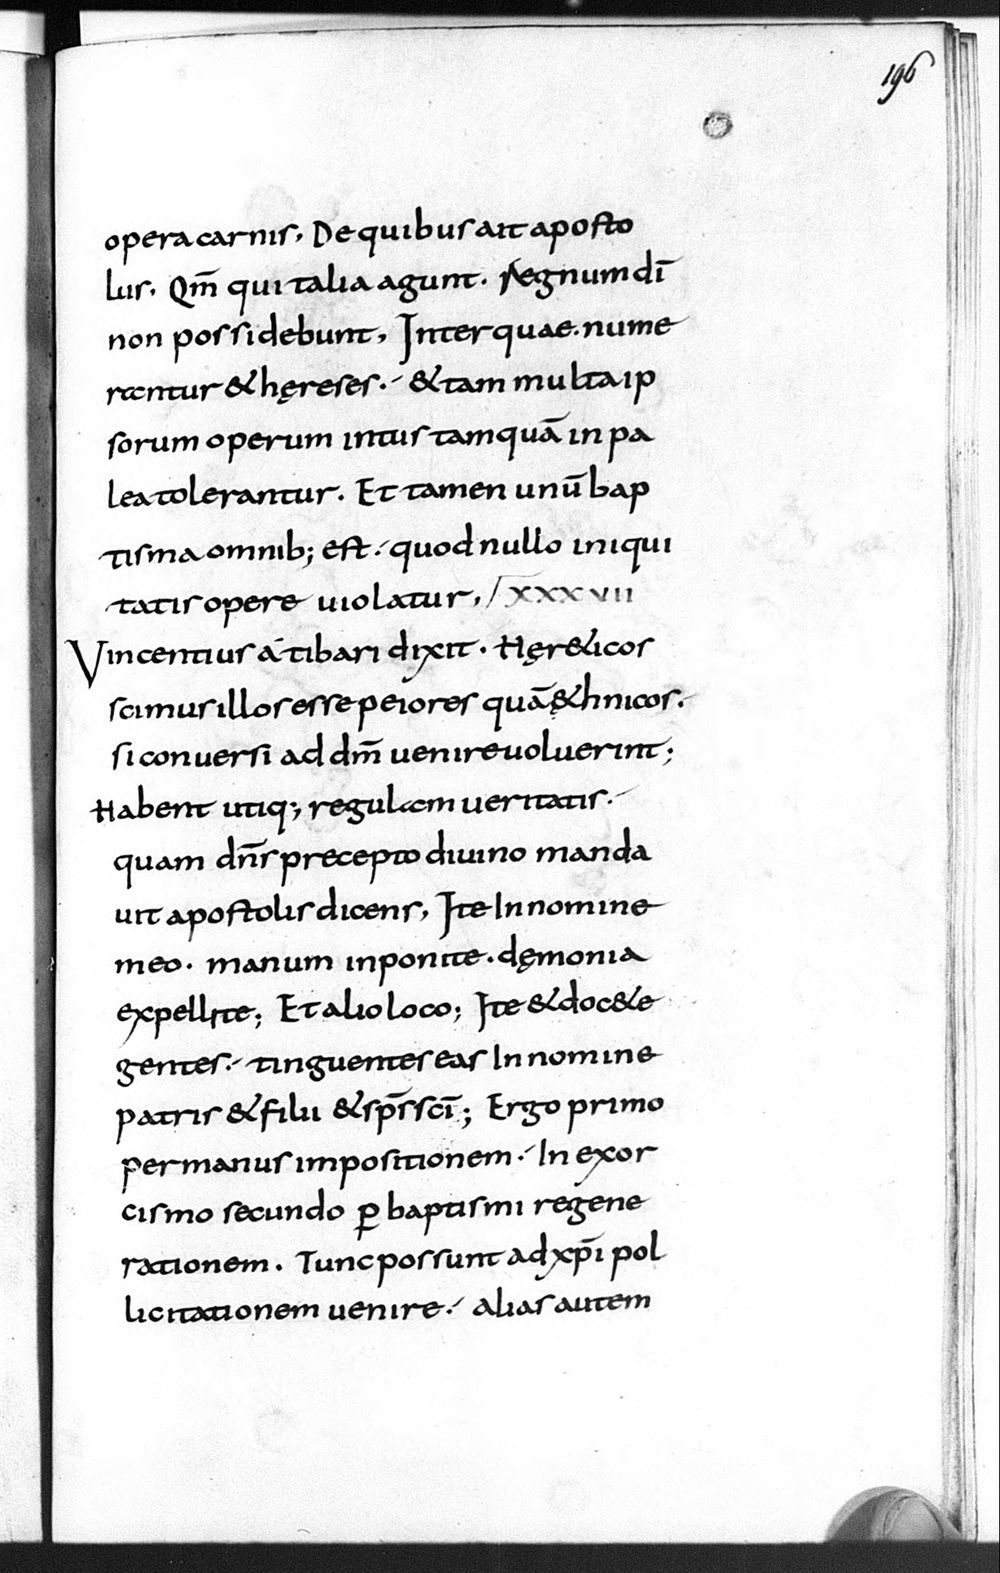 196
opera carnis, De quibus ait aposto
lus, Qm̄ qui talia agunt. Regnum dī
non possidebunt, Inter quae. nume
rantur & hęreses. & tam multa ip
sorum operum intus tamquā in pa
lea tolerantur. Et tamen unū bap
tisma omnib; est. quod nullo iniqui
tatis opere uiolatur, XXXVII
Vincentius a tibari dixit. Hęr&icos
scimus illos esse peiores quā &hnicos.
si conuersi ad dm̄ uenire uoluerint;
Habent utiq; regulam ueritatis.
quam dn̄s precepto diuino manda
uit apostolis dicens, Ite In nomine
meo. manum inponite. dęmonia
expellite; Et alio loco; Ite & doc&e
gentes. tinguentes eas In nomine
patris & filii & sp̄s scī; Ergo primo
per manus impositionem. In exor
cismo secundo ꝑ baptismi regene
rationem. Tunc possunt ad xp̄i pol
licitationem uenire. alias autem